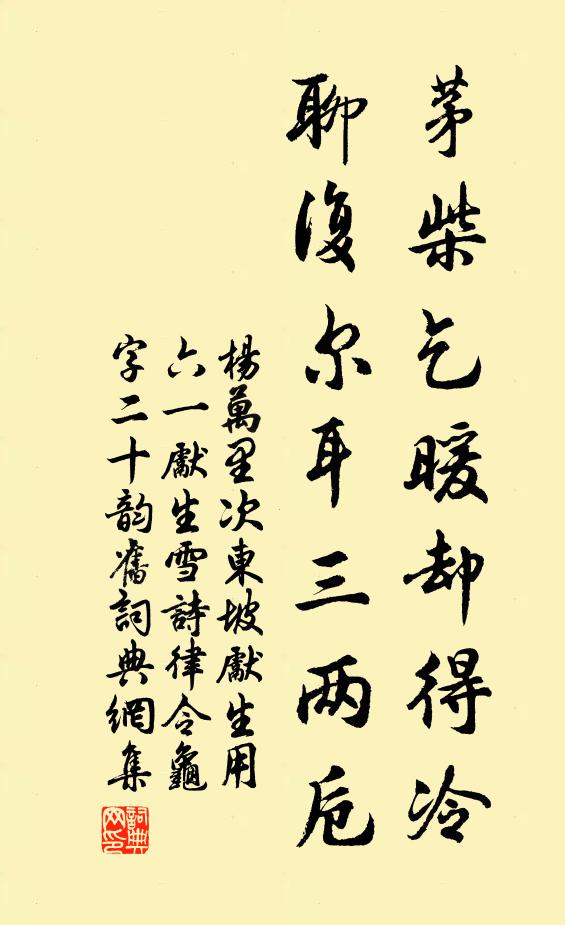 茅柴乞暖却得冷
聊復尔耳三两卮
楊萬里次東坡獻生用
六一獻生雪詩律令龜
字二十韵舊詞典網集
詞典网印